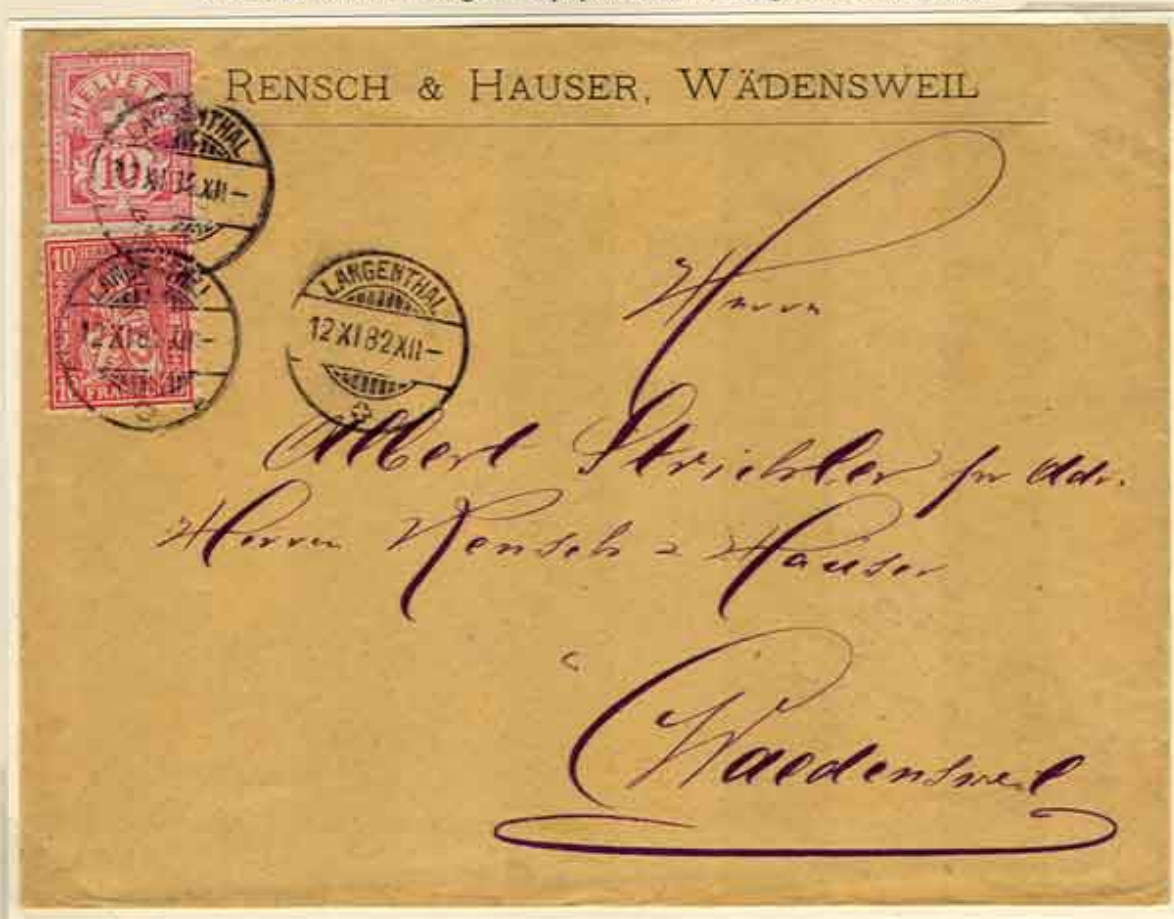 RENSCH & HAUSER, WÄDENSWEIL
HELVETIA
10
LANGENTHAL
XII–
10
10
FRANCO
LANGENTHAL
12 XI 82 XII–
LANGENTHAL
12 XI 82 XII–
Herrn
Albert Strickler pr Adr.
Herrn Rensch & Hauser
Waedensweil